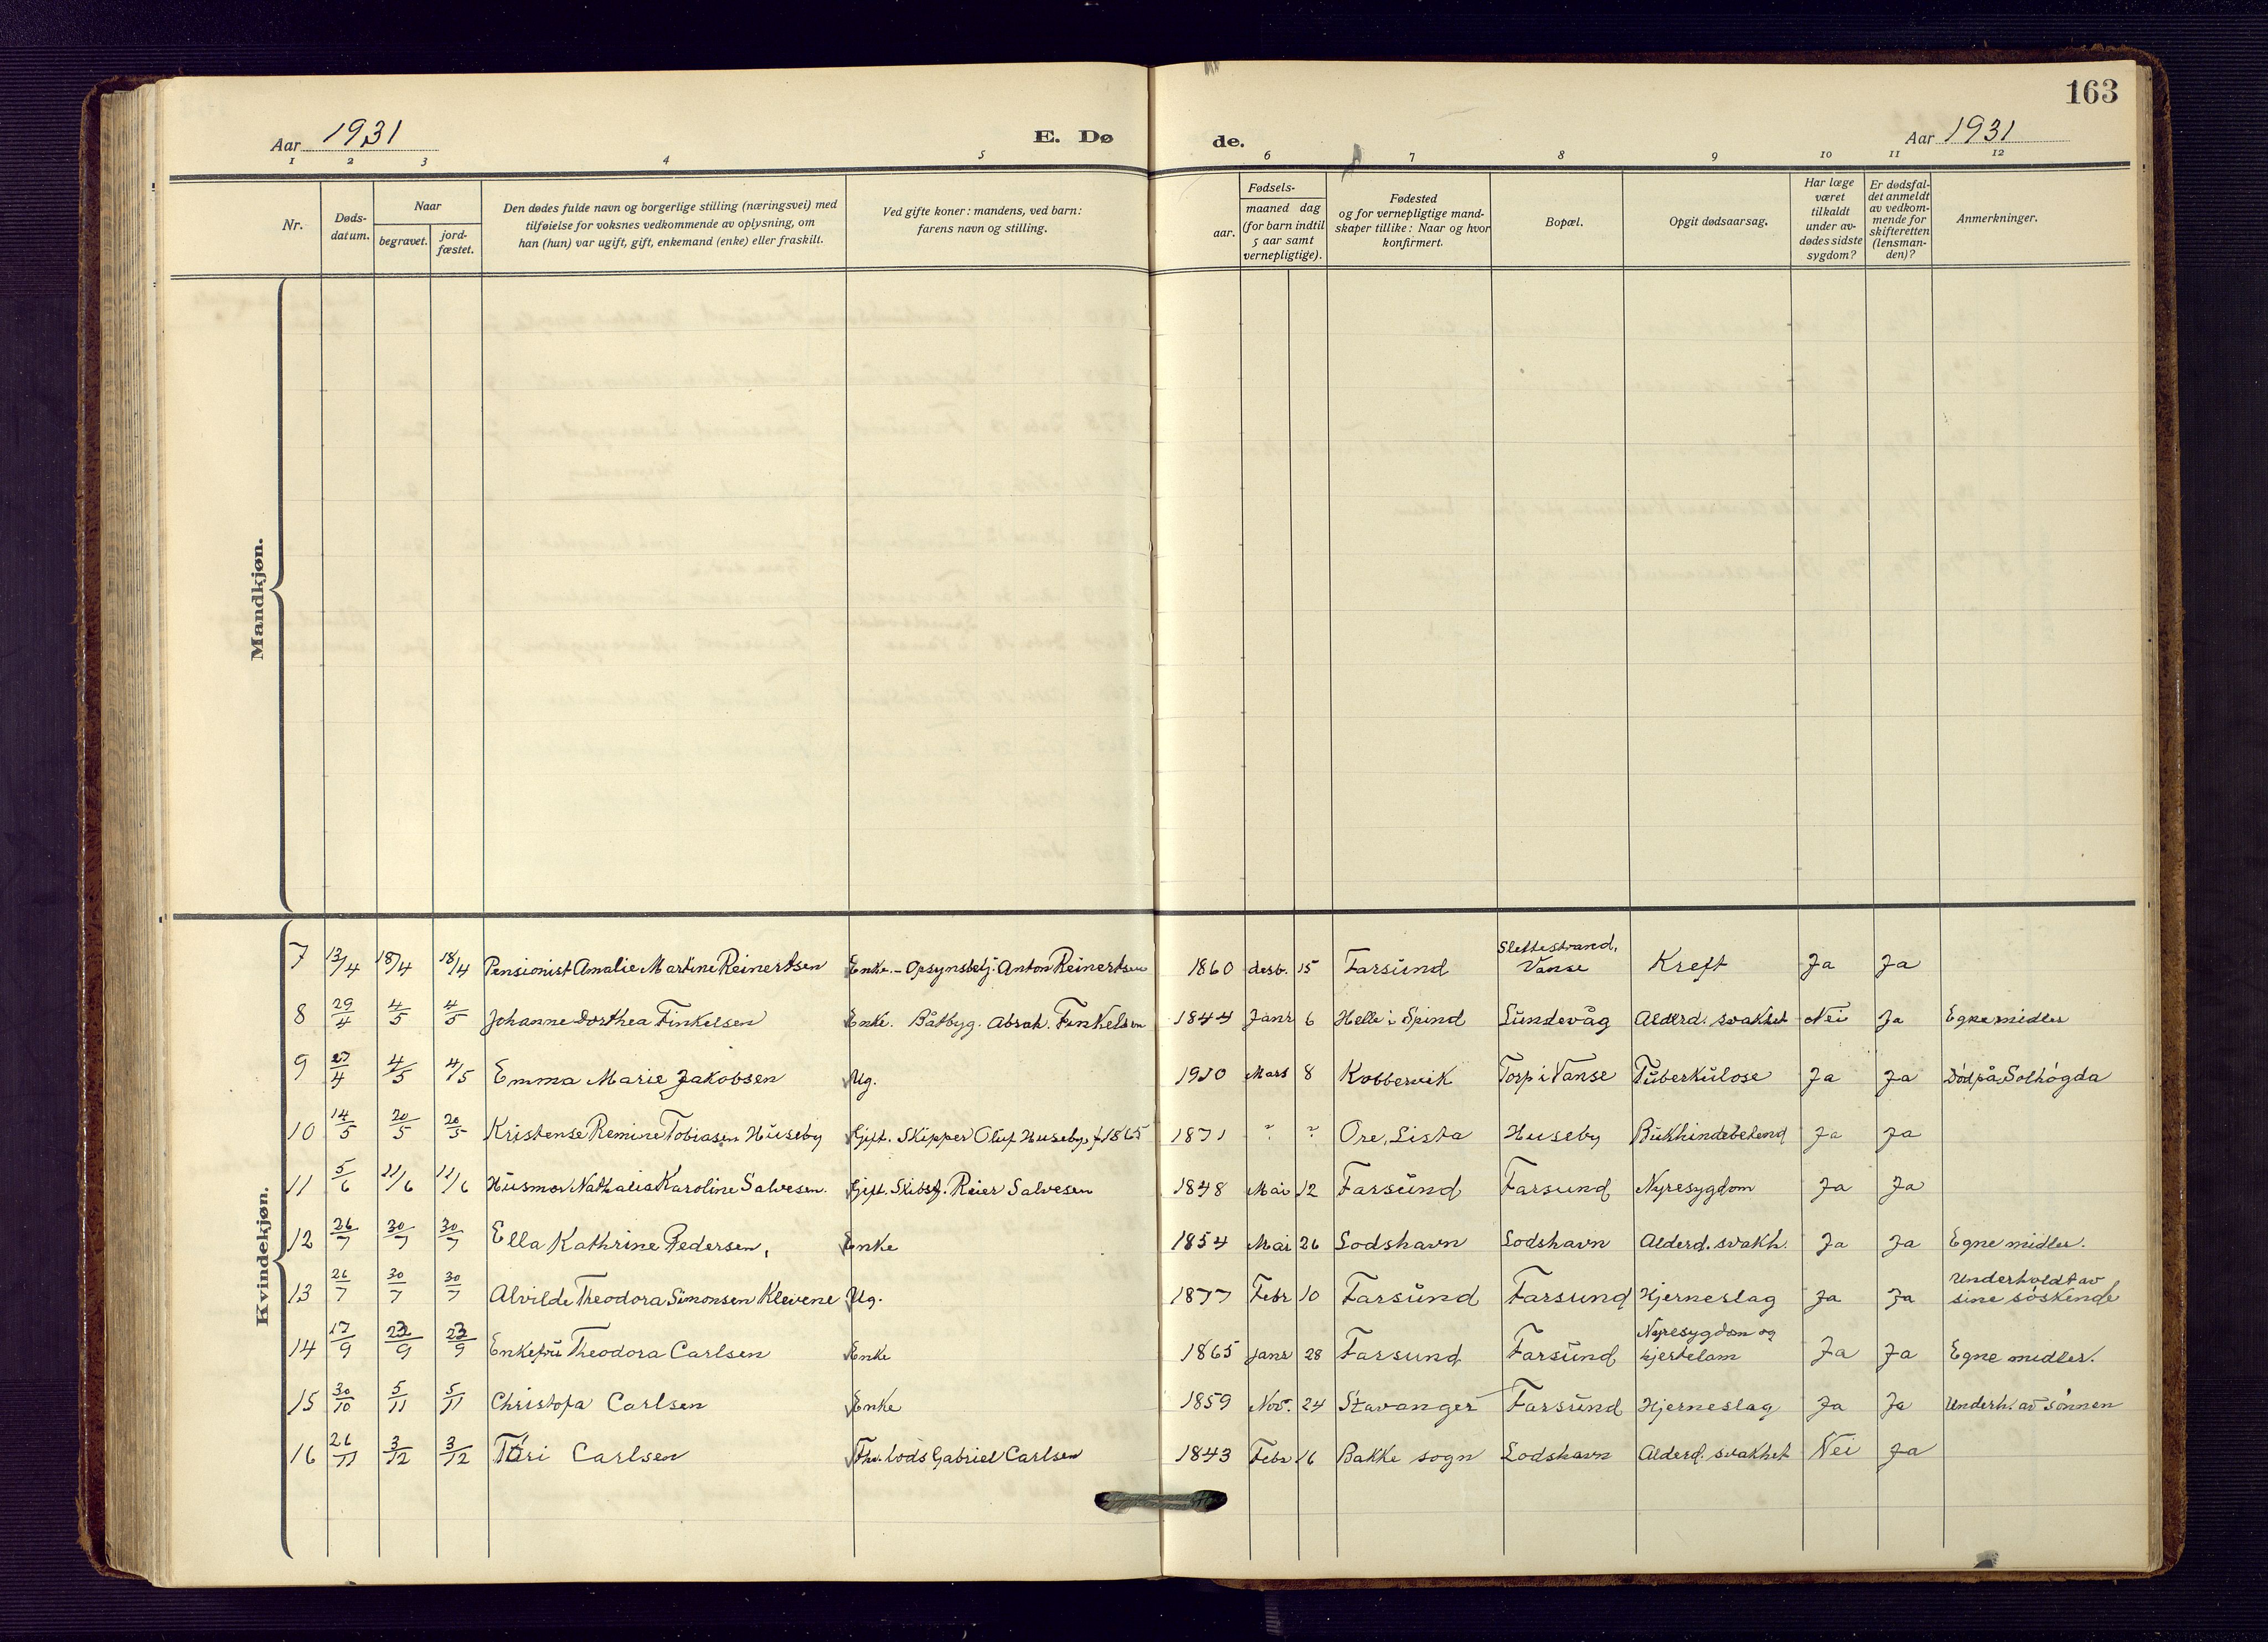 163
Aar 1931
E. Døde.
Aar 1931
1 2 3 4 5 6 7 8 9 10 11 12
Nr.
Døds-
datum.
Naar
begravet.
jord-
fæstet.
Den dødes fulde navn og borgerlige stilling (næringsvei) med
tilføielse for voksnes vedkommende av oplysning, om
han (hun) var ugift, gift, enkemand (enke) eller fraskilt.
Ved gifte koner: mandens, ved barn:
farens navn og stilling.
Fødsels-
aar.
maaned dag
(for barn indtil
5 aar samt
vernepligtige).
Fødested
og for vernepligtige mand-
skaper tillike: Naar og hvor
konfirmert.
Bopæl.
Opgit dødsaarsag.
Har læge
været
tilkaldt
under av-
dødes sidste
sygdom?
Er dødsfal-
det anmeldt
av vedkom-
mende for
skifteretten
(lensman-
den)?
Anmerkninger.
Mandkjøn.
Kvindekjøn.
7 13/4 18/4 18/4 Pensionist Amalie Martine Reinertsen Enke. - Opsynsbetj. Anton Reinertsen 1860 desb. 15 Farsund Slettestrand, Vanse Kreft Ja Ja
8 29/4 4/5 4/5 Johanne Dorthea Finkelsen Enke. Båtbyg. Abrah. Finkelsen 1844 Janr 6 Helle i Spind Lundevåg Alderd. svakhet Nei Ja Egne midler
9 27/4 4/5 4/5 Emma Marie Jakobsen Ug. 1910 Mars 8 Kobbervik Torp i Vanse Tuberkulose Ja Ja Død på Solhøgda
10 14/5 20/5 20/5 Kristense Remine Tobiasen Huseby Gift. Skipper Oluf Huseby, f 1865 1871 ? ? Ore, Lista Huseby Bukhindebetend Ja Ja
11 5/6 11/6 11/6 Husmor Nathalia Karoline Salvesen. Gift. Skibsf. Reier Salvesen 1848 Mai 12 Farsund Farsund Nyresygdom Ja Ja
12 26/7 30/7 30/7 Ella Kathrine Pedersen, Enke 1854 Mai 26 Lodshavn Lodshavn Alderd. svakh. Ja Ja Egne midler.
13 26/7 30/7 30/7 Alvilde Theodora Simonsen Klevene Ug. 1877 Febr 10 Farsund Farsund Hjerneslag Ja Ja Underholdt av sine søskende
14 17/9 22/9 23/9 Enkefru Theodora Carlsen Enke 1865 Janr 28 Farsund Farsund Nyresygdom og hjertelam Ja Ja Egne midler.
15 30/10 5/11 5/11 Christofa Carlsen Enke 1859 Nov. 24 Stavanger Farsund Hjerneslag Ja Ja Underh. av sønnen
16 26/11 3/12 3/12 Tori Carlsen Fhv. lods Gabriel Carlsen 1843 Febr 16 Bakke sogn Lodshavn Alderd. svakhet Nei Ja